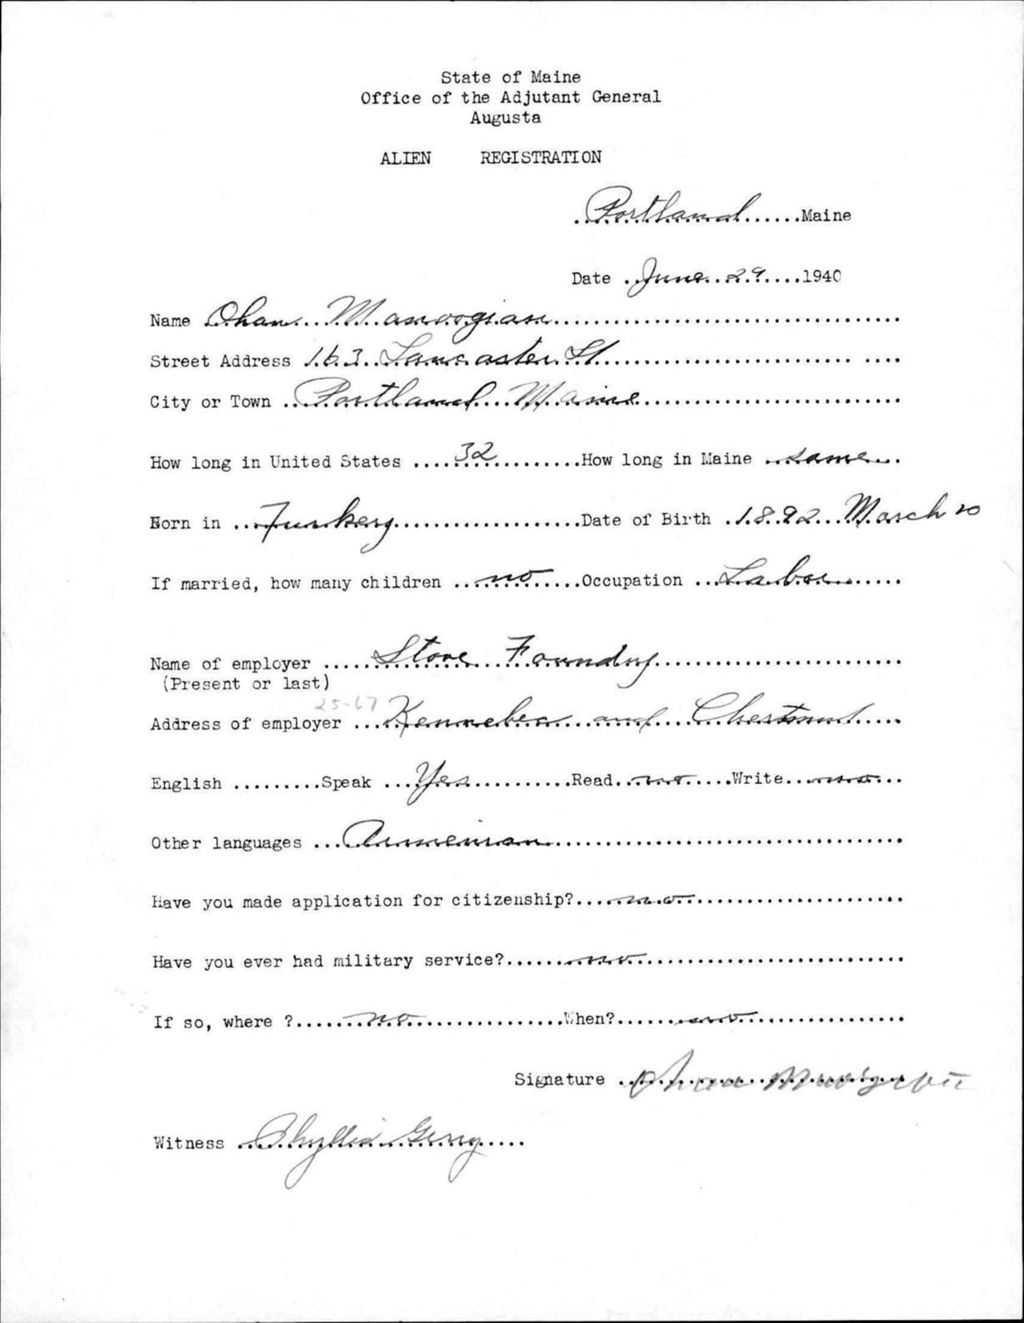 State of Maine
Office of the Adjutant General
Augusta
ALIEN REGISTRATION
Portland Maine
Date June 29 1940
Name Ohan Manoogian
Street Address 163 Lancaster St
City or Town Portland Maine
How long in United States 32 How long in Maine same
Born in Turkey Date of Birth 1892 March 20
If married, how many children no Occupation Labor
Name of employer Stove Foundry
(Present or last)
25-67
Address of employer Kennebec and Chestnut
English Speak Yes Read no Write no
Other languages Armenian
Have you made application for citizenship? no
Have you ever had military service? no
If so, where ? no When? no
Signature Ohan
Witness Phyllis